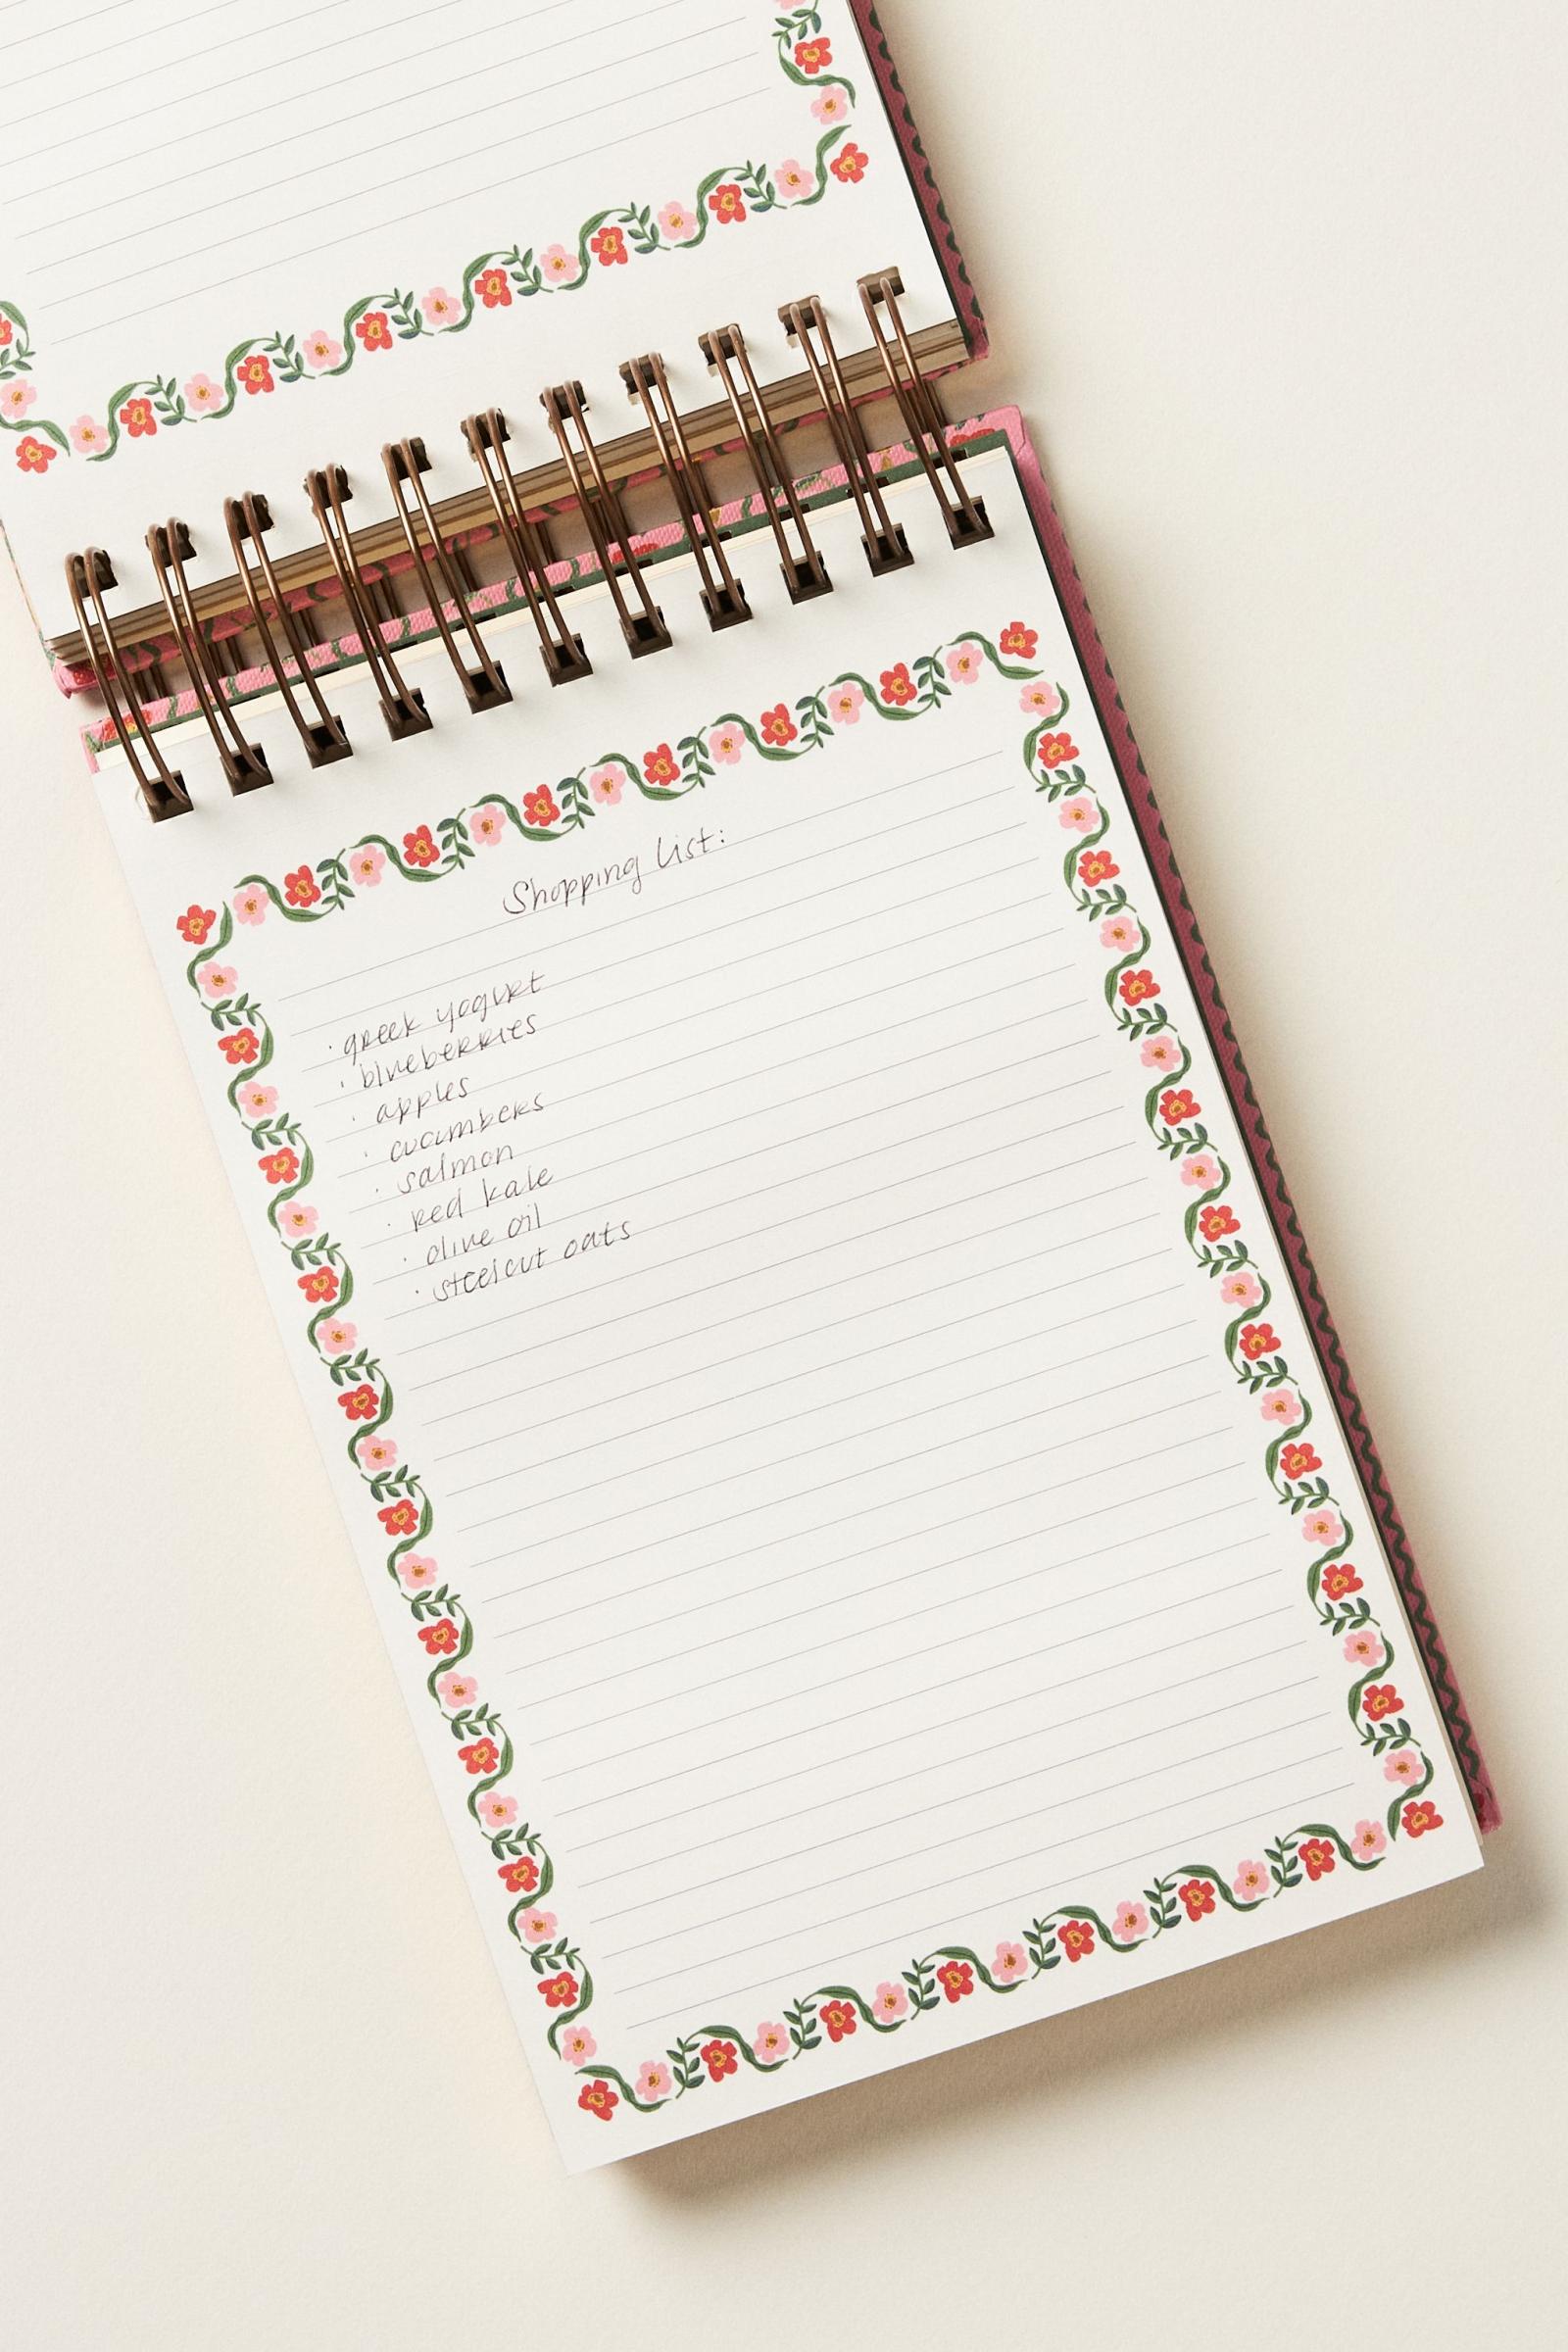 Shopping list:
· greek yogurt
· blueberries
· apples
· cucumbers
· salmon
· red kale
· olive oil
· steelcut oats